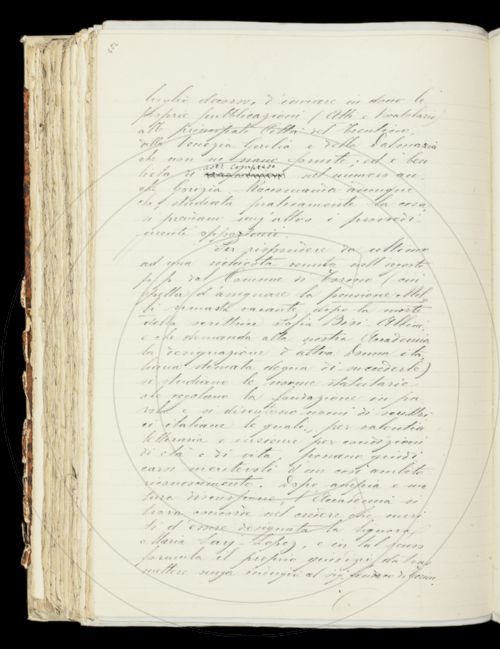 luglio decorso, d'inviare in dono le
proprie pubblicazioni (Atti e
alle principali Città del Trentino,
della Venezia Giulia e della Dalmazia
che non ne siano fornite; ed è
di compreso nel numero an-
che Gorizia. Raccomanda comunque
che studiata praticamente la cosa
si prendano senz'altro i provvedi-
menti opportuni.
Per rispondere da ultimo
ad una richiesta venuta nell'agosto
p. p. dal Comune di Torino (cui
spetta d'assegnare la pensione
rimasta vacante dopo la morte
della scrittrice Sofia Bisi Albini,
e che domanda alla nostra Accademia
la designazione d'altra Donna ita-
liana stimata degna di succederle)
si studiano le norme statutarie
che regolano la fondazione in pa-
rola e si discutono nomi di scrittri-
ci italiane le quali, per valentia
letteraria e insieme per condizioni
di età e di vita, possano giudi-
carsi meritevoli d'un così ambito
riconoscimento. Dopo ampia e ma-
tura discussione l'Accademia si
trova concorde nel credere che meri-
ti d'essere designata la Signora
Maria Savj Lopez, e in tal senso
formula il proprio giudizio da tras-
mettere senza indugio al sig. Sindaco di Torino.